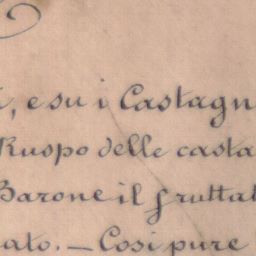 , e su i Castagn
Ruspo delle casta
Barone il fruttat
ato. — Cosi pure